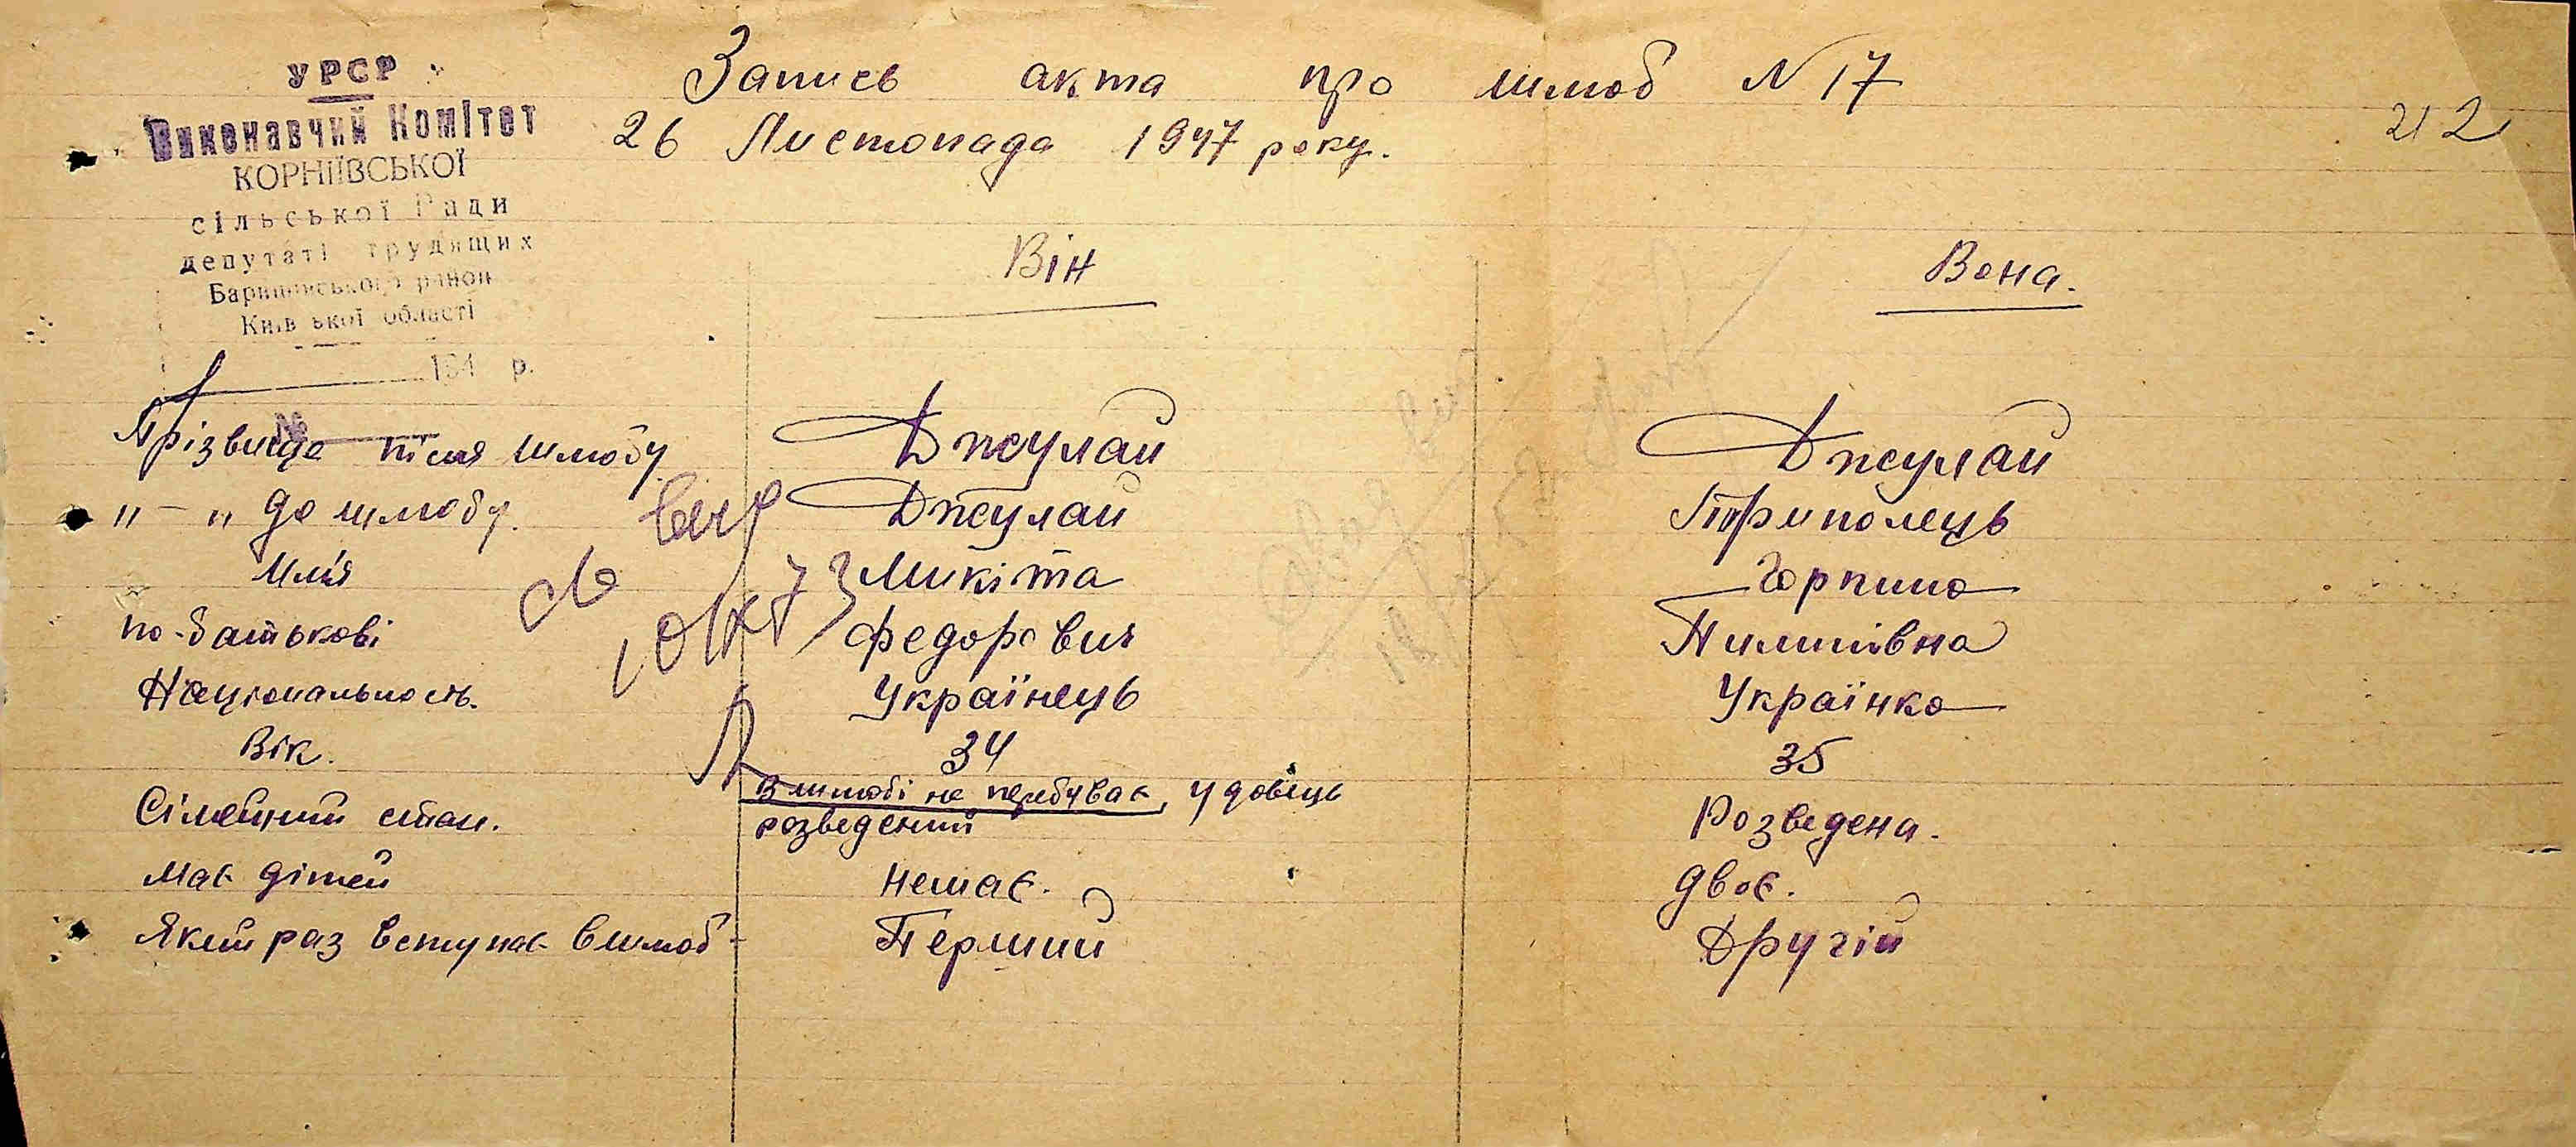 УРСР
Виконавчий Комітет
КОРНІЇВСЬКОЇ
сільської Ради
депутаті трудящих
Баришівського район
Київ ької області
194 р.
№
Запись акта про шлюб N 17
26 Листопада 1947 року.
212
Він Вона.
Прізвище після шлюбу Джулай Джулай
"-" до шлюбу. Джулай Триполець
Імля Микіта Горпина
по-батькові Федорович Пилипівна
Національность. Українець Українка
Вік. 34 35
Сімейний стан. В шлюбі не перебуває, удовець розведений Розведена.
Має дітей Немає. двоє.
Який раз вступає в шлюб Перший Другій